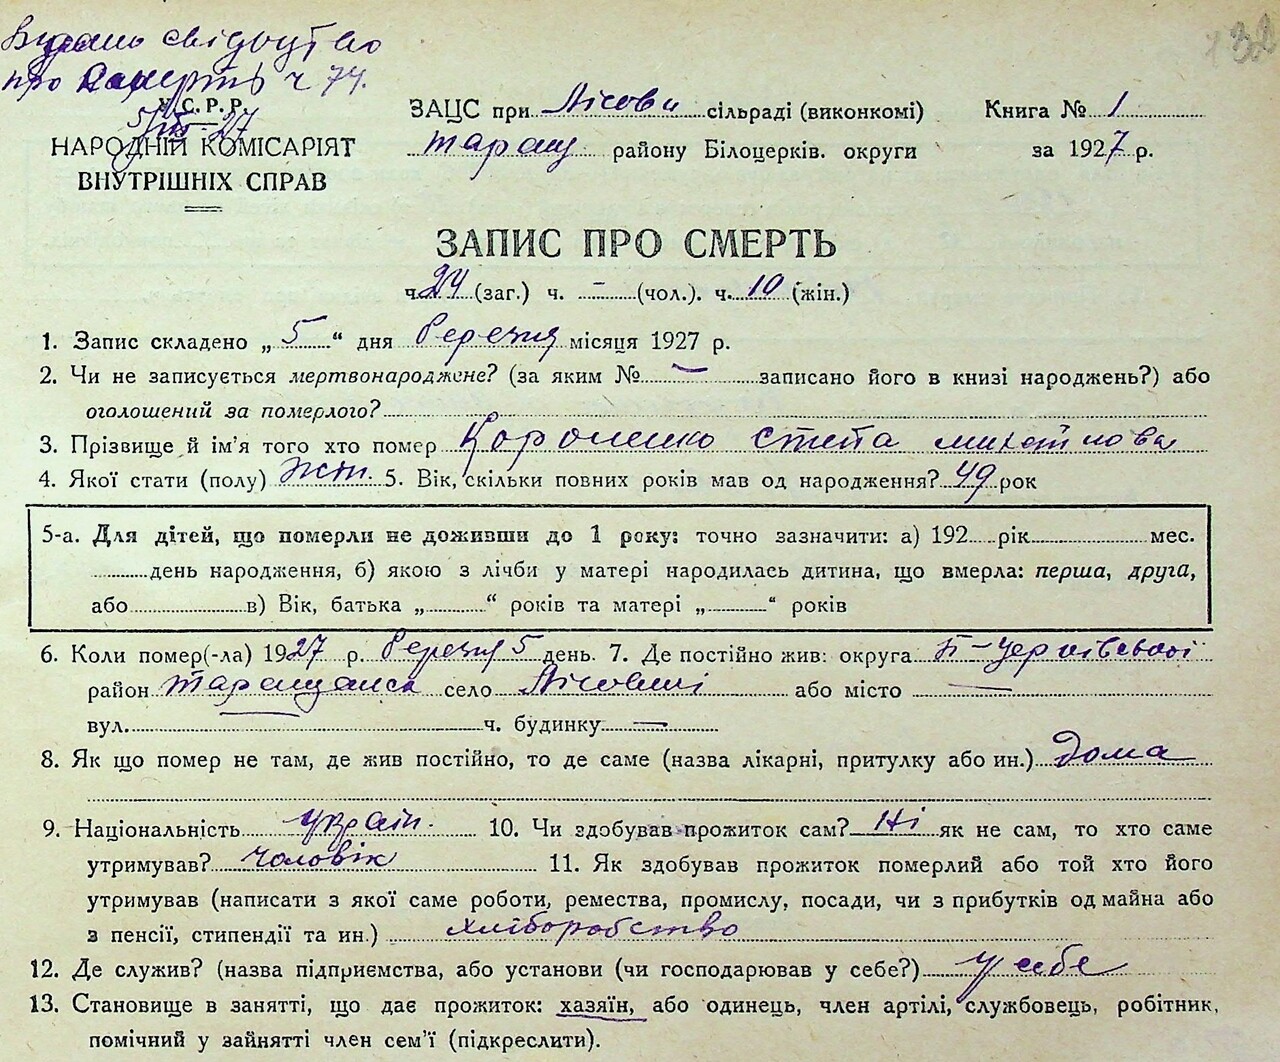 Видано свідоцтво
про смерть ч 74.
5/III-27
У.С.Р.Р.
НАРОДНІЙ КОМІСАРІЯТ
ВНУТРІШНІХ СПРАВ
ЗАЦС при Лісови сільраді (виконкомі)
Таращ району Білоцерків. округи
Книга № 1
за 1927 р.
ЗАПИС ПРО СМЕРТЬ
ч. 24 (заг.) ч. - (чол.). ч. 10 (жін.)
1. Запис складено „ 5 “ дня березня місяця 1927 р.
2. Чи не записується мертвонароджене? (за яким № — записано його в книзі народжень?) або
оголошений за померлого?
3. Прізвище й ім'я того хто помер
4. Якої стати (полу) Жін. 5. Вік, скільки повних років мав од народження? 49 рок
5-а. Для дітей, що померли не доживши до 1 року: точно зазначити: а) 192 рік мес.
день народження, б) якою з лічби у матері народилась дитина, що вмерла: перша, друга,
або в) Вік, батька „ “ років та матері „ “ років
6. Коли помер(-ла) 1927 р. березня 5 день. 7. Де постійно жив: округа Б-Церківської
район Таращанск село або місто —
вул. ч. будинку —
8. Як що помер не там, де жив постійно, то де саме (назва лікарні, притулку або ин.) дома
9. Національність україн. 10. Чи здобував прожиток сам? Ні як не сам, то хто саме
утримував? чоловік 11. Як здобував прожиток померлий або той хто його
утримував (написати з якої саме роботи, ремества, промислу, посади, чи з прибутків од майна або
з пенсії, стипендії та ин.) хліборобство
12. Де служив? (назва підприємства, або установи (чи господарював у себе?) у себе
13. Становище в занятті, що дає прожиток: хазяїн, або одинець, член артілі, службовець, робітник,
помічний у зайнятті член сем'ї (підкреслити).